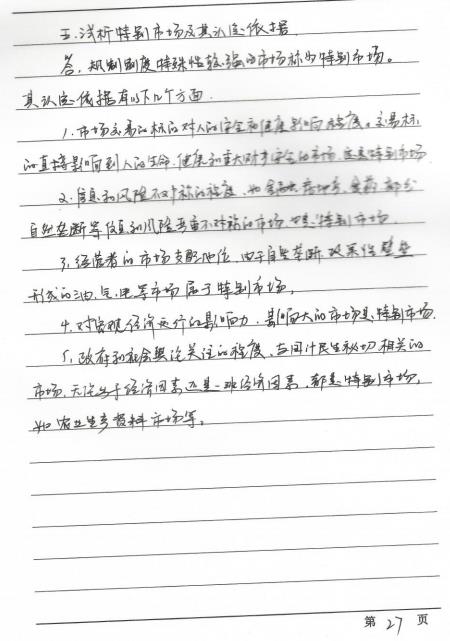 五.浅析特别市场及其认定依据.
答,规制制度特殊性较强的市场称为特别市场。
其认定依据有以下几个方面.
1.市场交易的标的对人的安全和健康影响程度。交易标
的直接影响到人的生命、健康和重大财产安全的市场,应是特别市场
2.信息和风险不对称的程度,如金融、房地产、医药、部分
自然垄断等信息和风险严重不对称的市场,也是特别市场.
3.经营者的市场支配地位,由于自然垄断、政策性壁垒
形成的油、气、电等市场属于特别市场。
4.对宏观经济运行的影响力,影响大的市场是特别市场.
5.政府和社会舆论关注的程度,与国计民生密切相关的
市场,无论出于经济因素还是非经济因素,都是特别市场,
如农业生产资料市场等。
第27页